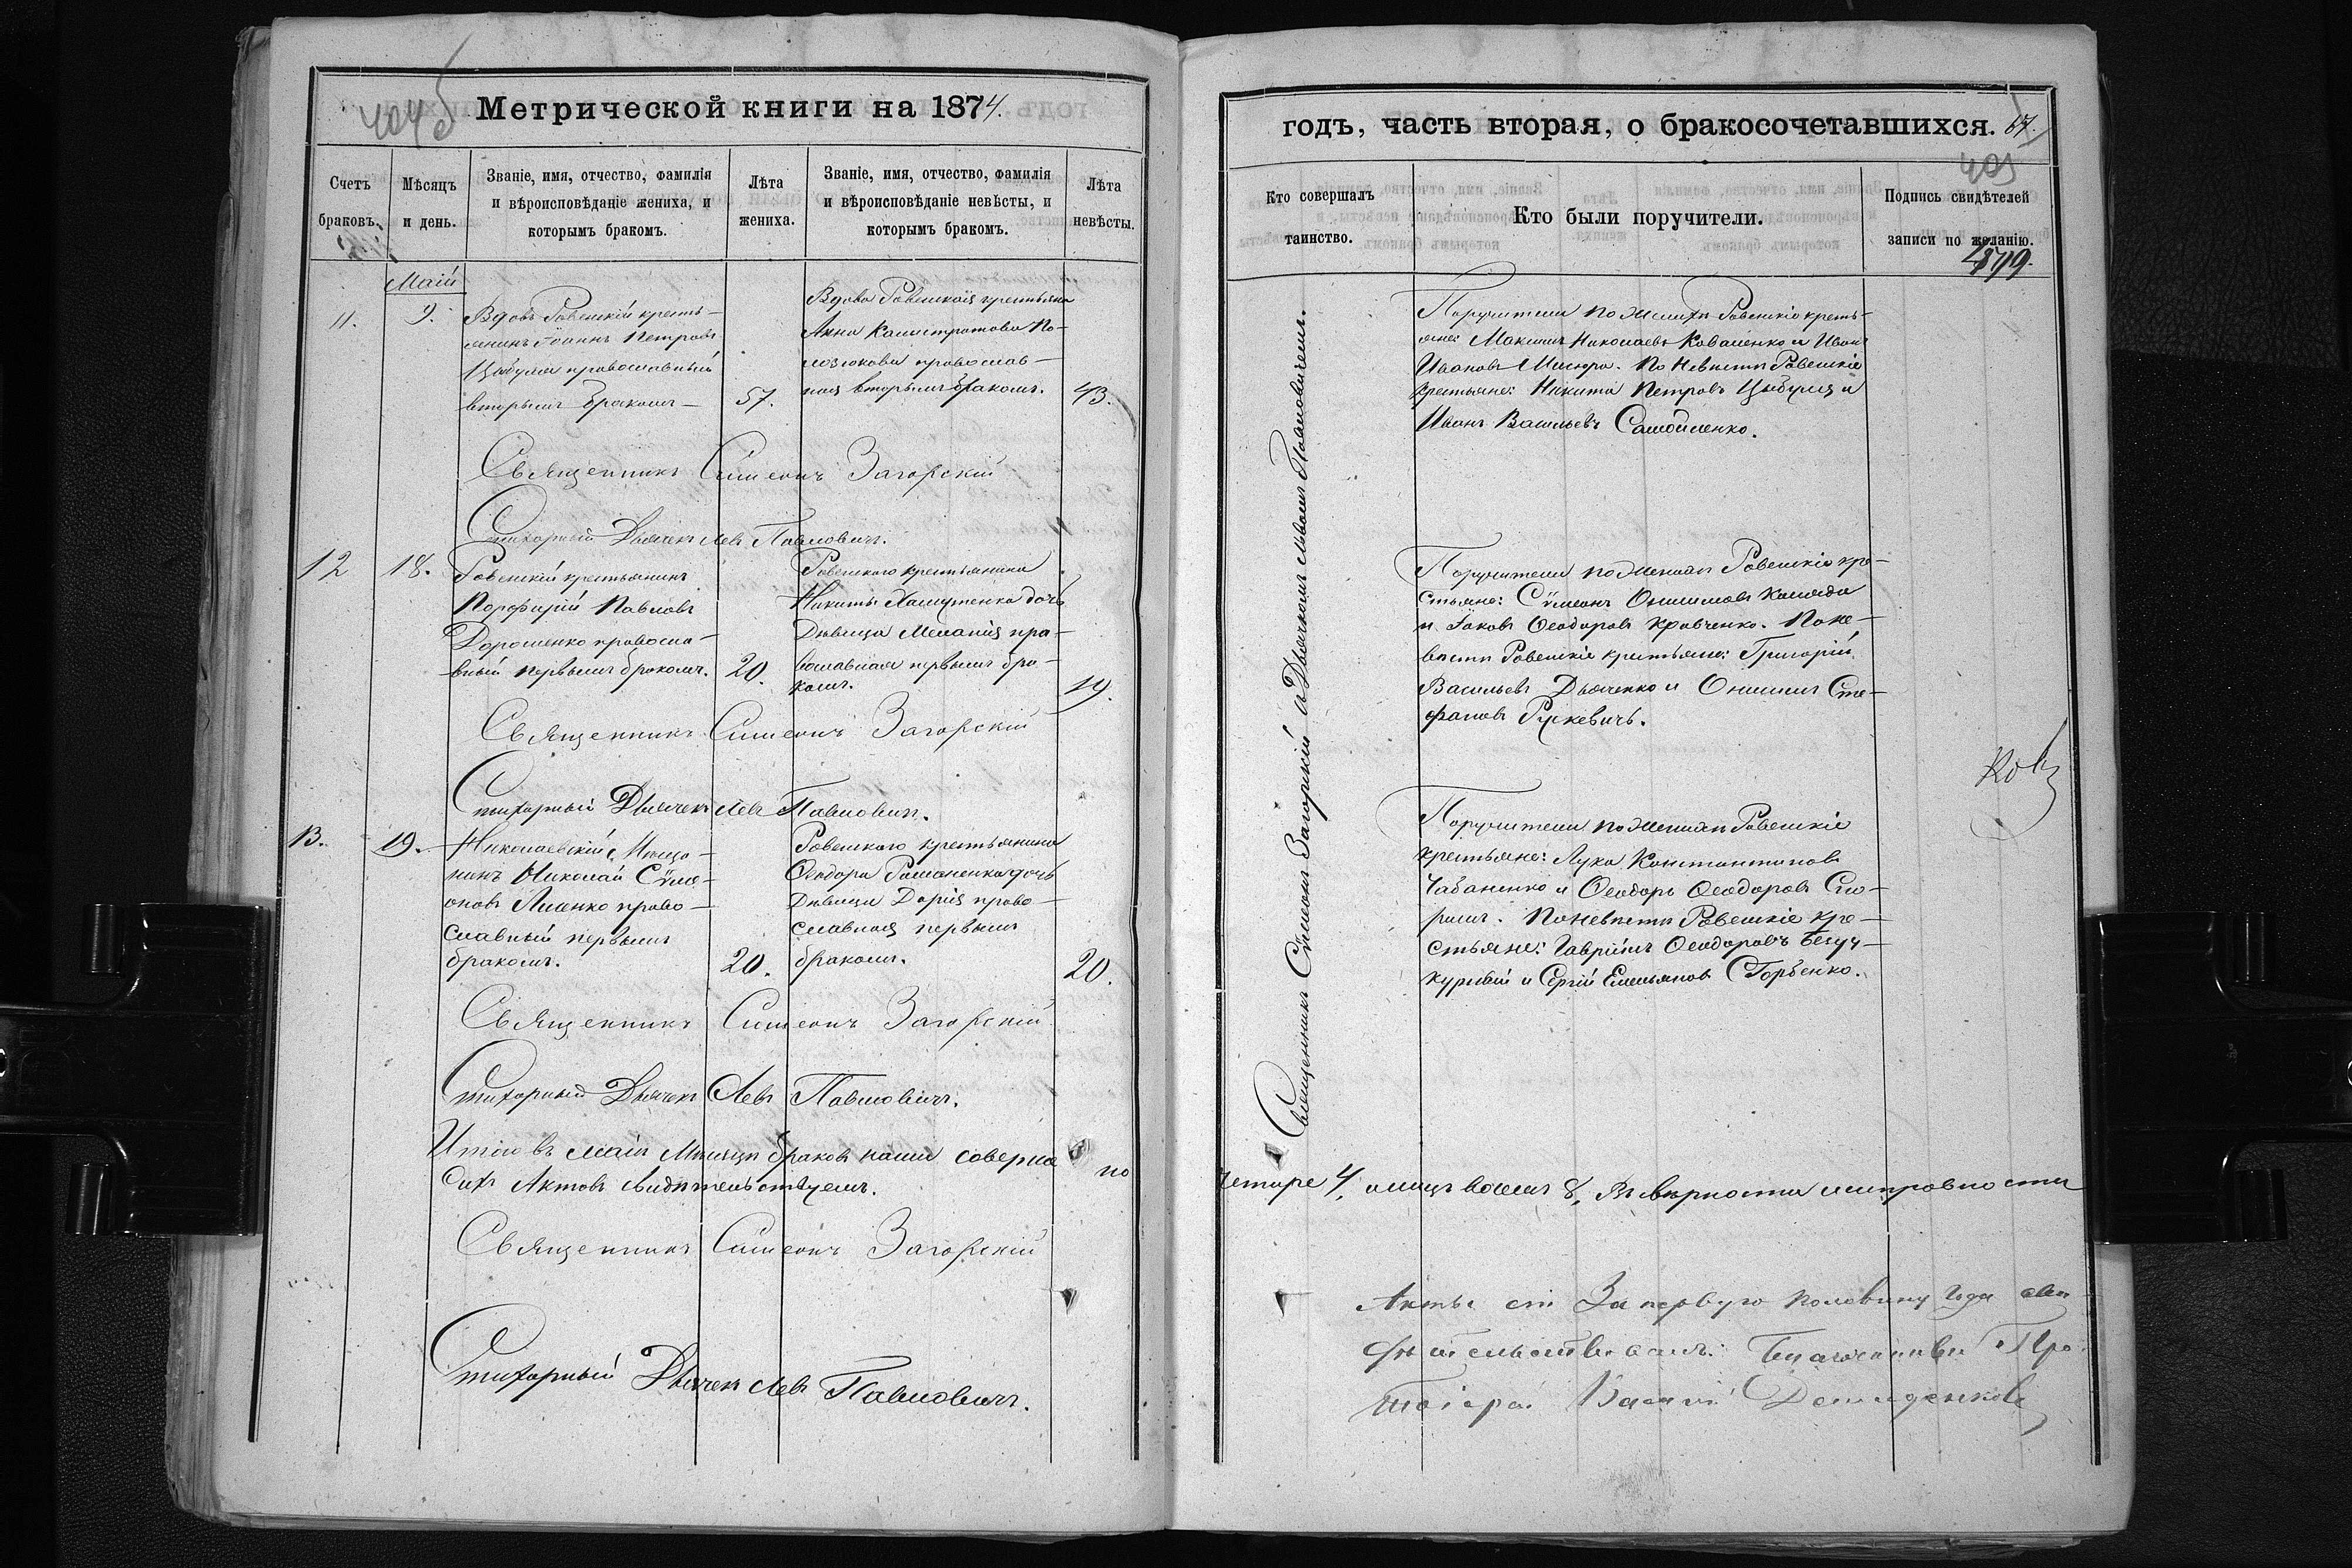 Метрической книги на 1874.
Счетъ браковъ.
Мѣсяцъ и день.
Званіе, имя, отчество, фамилія
и вѣроисповѣданіе жениха, и
которымъ бракомъ.
Лѣта жениха.
Званіе, имя, отчество, фамилія
и вѣроисповѣданіе невѣсты, и
которымъ бракомъ.
Лѣта невѣсты.
Маій
11.
9.
Вдовъ Ровенскій кресть-
янинъ Іоаннъ Петровъ
Цыбуля православный
вторымъ бракомъ-
57.
Вдова Ровенская крестьянка
Анна Калистратова По-
лозюкова православ-
ная вторымъ бракомъ.
43.
Священникъ Симеонъ Загорскій
Стихарный Дьячекъ Левъ Павловичъ.
12
18.
Ровенскій крестьянинъ
Порфирій Павловъ
Дорошенко правосла-
вный первымъ бракомъ.
20.
Ровенского крестьянина
Никиты Хамутенка дочь
Дѣвица Меланія пра-
вославная первымъ бра-
комъ.
19.
Священникъ Симеонъ Загорскій
Стихарный Дьячекъ Левъ Павловичъ.
13.
19.
Николаевскій Мѣща-
нинъ Николай Сѵме-
оновъ Лисенко право-
славный первымъ
бракомъ.
20.
Ровенского крестьянина
Ѳеодора Романенка дочь
Дѣвица Дарія право-
славная первымъ
бракомъ.
20.
Священникъ Симеонъ Загорскій
Стихарный Дьячекъ Левъ Павловичъ.
Итого въ маіи Мѣсяцѣ браковъ нами соверше но
сихъ Актовъ свидѣтельствуемъ.
Священникъ Симеонъ Загорскій
Стихарный Дьячекъ Левъ Павловичъ.
годъ, часть вторая, о бракосочетавшихся. 67.
Кто совершалъ таинство.
Кто были поручители.
Подпись свидѣтелей
записи по желанію.
Священникъ Сѵмеонъ Загорскій съ Дьячкомъ Львомъ Павловичемъ.
Поручители по Женихѣ Ровенскіе кресть-
яне: Максимъ Николаевъ Коваленко и Иванъ
Ивановъ. По Невѣстѣ Ровенскіе
крестьяне: Никита Петровъ Цыбуля и
Иванъ Васильевъ Самойленко.
Поручители по Женихѣ Ровенскіе кре-
стьяне: Сѵмеонъ Онисимовъ Коляда
и Іаковъ Ѳеодоровъ Кравченко. По не-
вѣстѣ Ровенскіе крестьяне: Григорій
Васильевъ Дьяченко и Онисимъ Сте-
фановъ Руцкевичъ.
Поручители по Женихѣ Ровенскіе
крестьяне: Лука Константиновъ
Чабаненко и Ѳеодоръ Ѳеодоровъ
По невѣстѣ Ровенскіе кре-
стьяне: Гавріилъ Ѳеодоровъ
и Сергій Емельяновъ Горбенко.
Четыре 4, а лицъ восемь 8. Въ вѣрности и исправности
Акты сіи За первую половину года сви-
дѣтельствовалъ: Благочинный Про-
тоіерей Василій